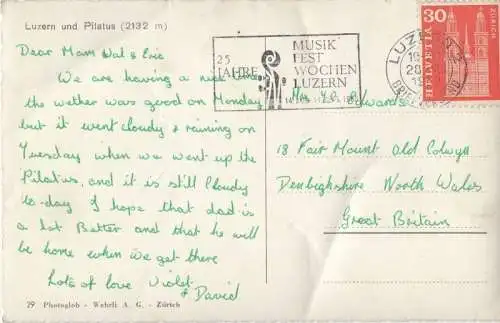 Luzern und Pilatus (2132 m)
Dear Mam Val & Eric
We are having a nice time
the wether was gerod on Monday
but it went cloudy & raining on
Tuesday when we went up the
Pilatus, and it is still Cloudy
to-day I hope that dad is
a lot Better and that he will
be home when we get there
Lots of love Violet
& David
29 Photoglob - Wehrli A. G. - Zürich
25
JAHRE
MUSIK
FEST
WOCHEN
LUZERN
LUZERN
30
HELVETIA
ZÜRICH
Mrs Edwards
18 Fair Mount Old Colwyn
Denbighshire North Wales
Great Britain